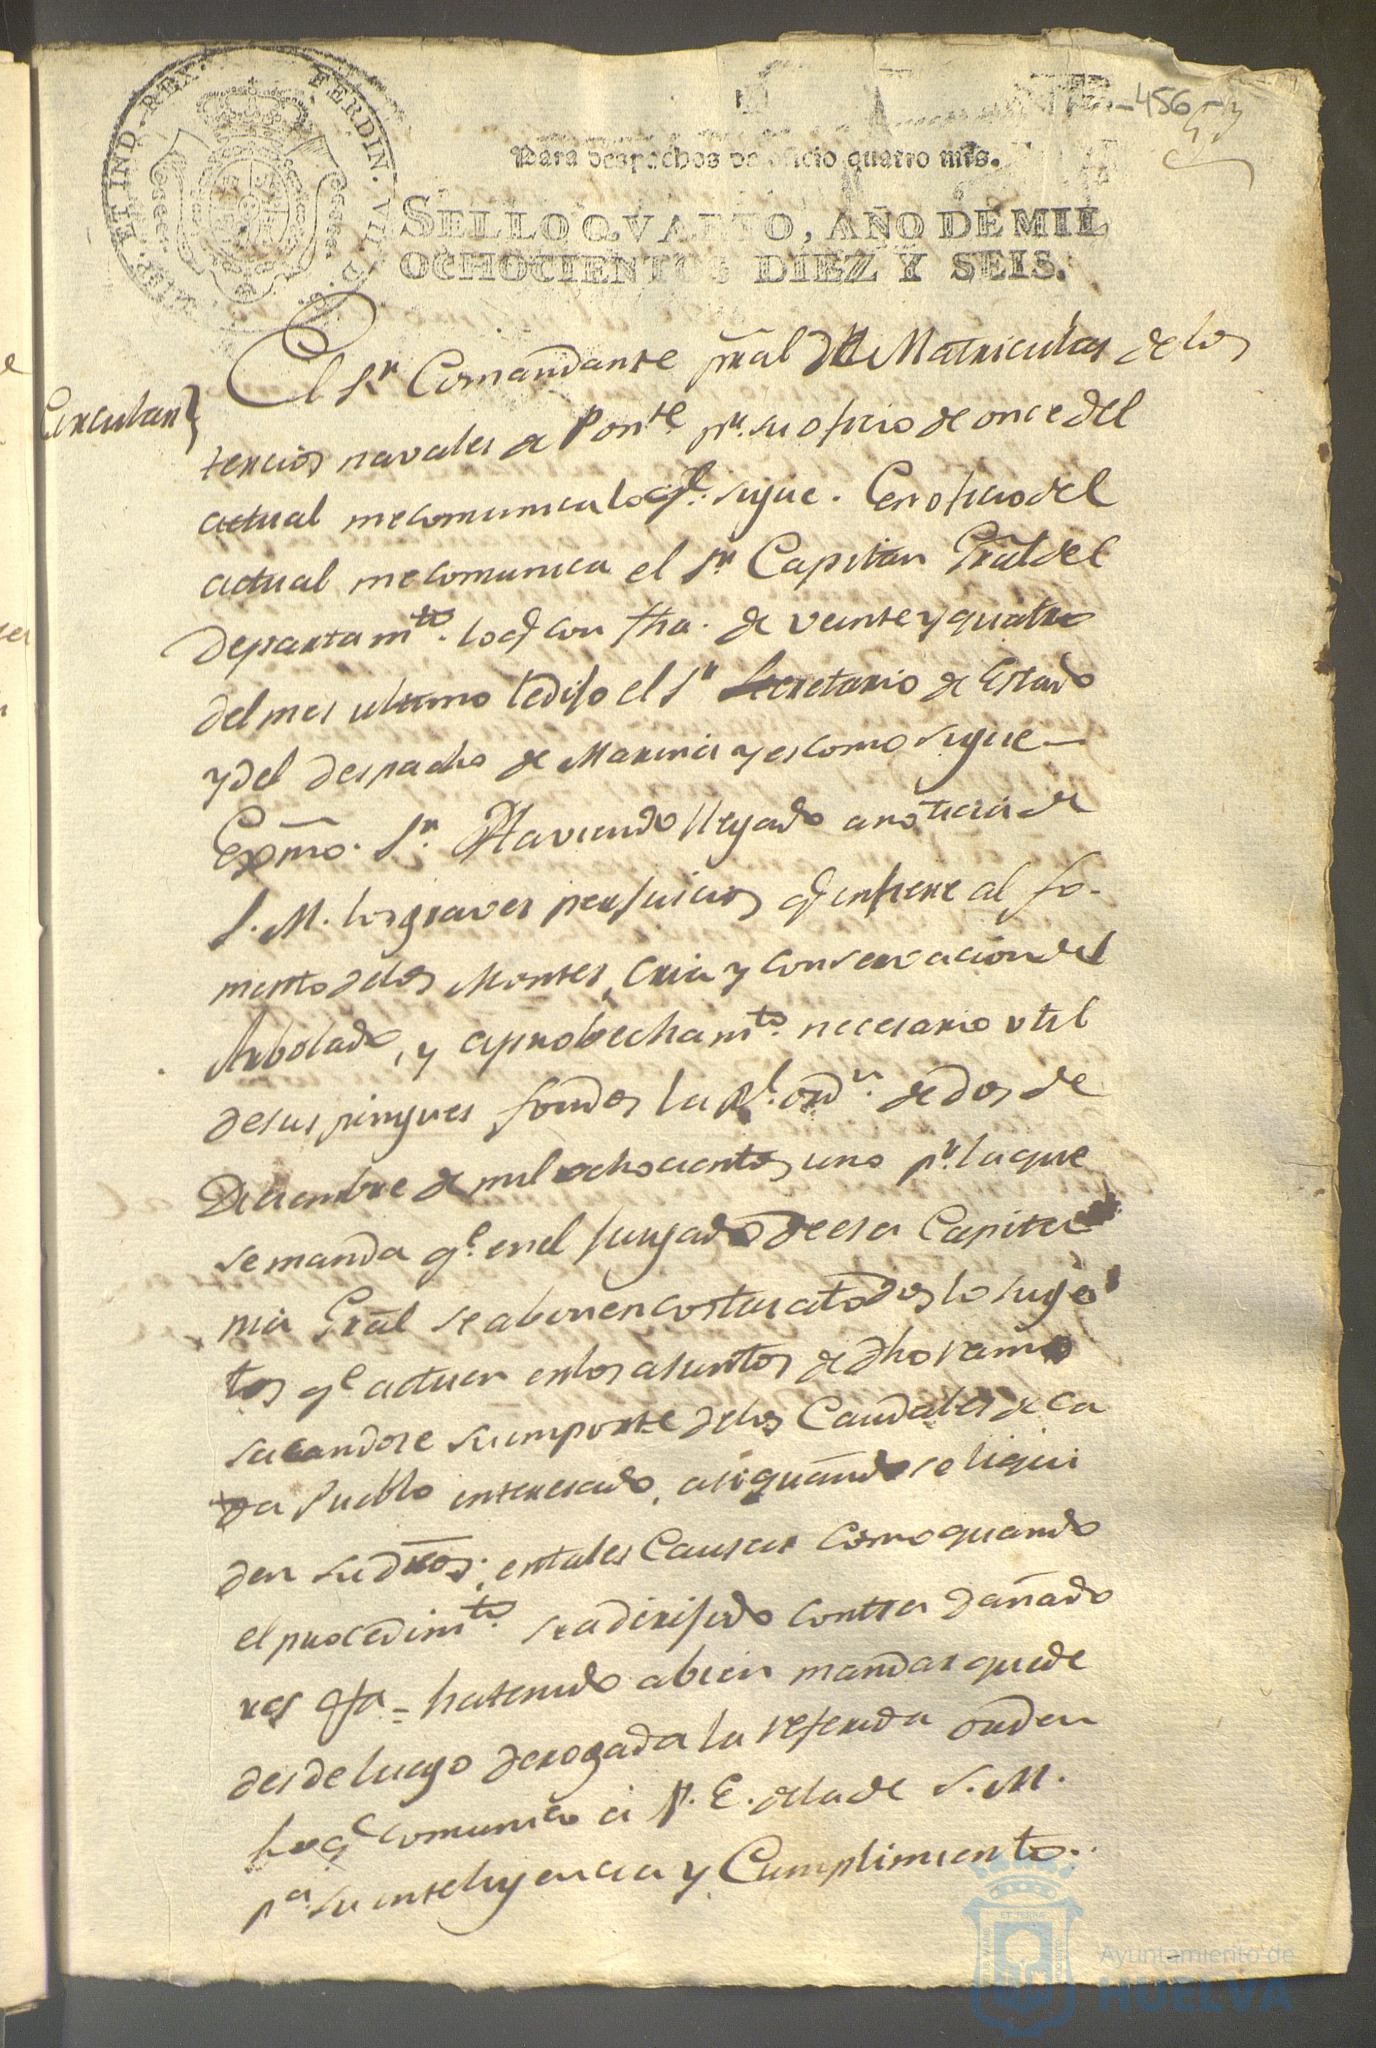 HISP. ET IND. REX. FERDIN. VII. D. G.
-456-
Para despachos de oficio quatro mrs.
SELLO QVARTO, AÑO DE MIL
OCHOCIENTOS DIEZ Y SEIS.
Circular
El Sr. Comandante pral de Matriculas de los
tercios navales de Ponte. pr. su oficio de once del
actual me comunica lo qe. sigue. En oficio del
actual me comunica el Sr. Capitan Gral del
departamto. lo q con fha. de veinte y quatro
del mes ultimo le dijo el Sr. Secretario de Estado
y del despacho de Marina y es como sigue—
Exmo. Sr. Haviendo llegado a noticia de
S. M. los graves perjuicios q infiere al fo-
mento de los Montes, cria y conservacion del
Arbolado, y aprobechamto. necesario util
de sus pingues fondos la Rl. ordn. de dos de
Diciembre de mil ochocientos uno pr. la que
se manda qe. en el Juzgado de esa Capita
nia Gral se abonen costas a todos lo suge
tos qe. actuen en los asuntos de dho ramo
sacandose su importe de los Caudales de ca
da Pueblo interesado, asi quando se liqui
den su dros. en tales Causas como quando
el procedimto. sea dirijido contra dañado
res &a = ha tenido a bien mandar quede
desde luego derogada la referida orden
lo qe comunico a V. E. de la de S. M.
pa. su inteligencia y Cumplimiento..
Ayuntamiento de
HUELVA